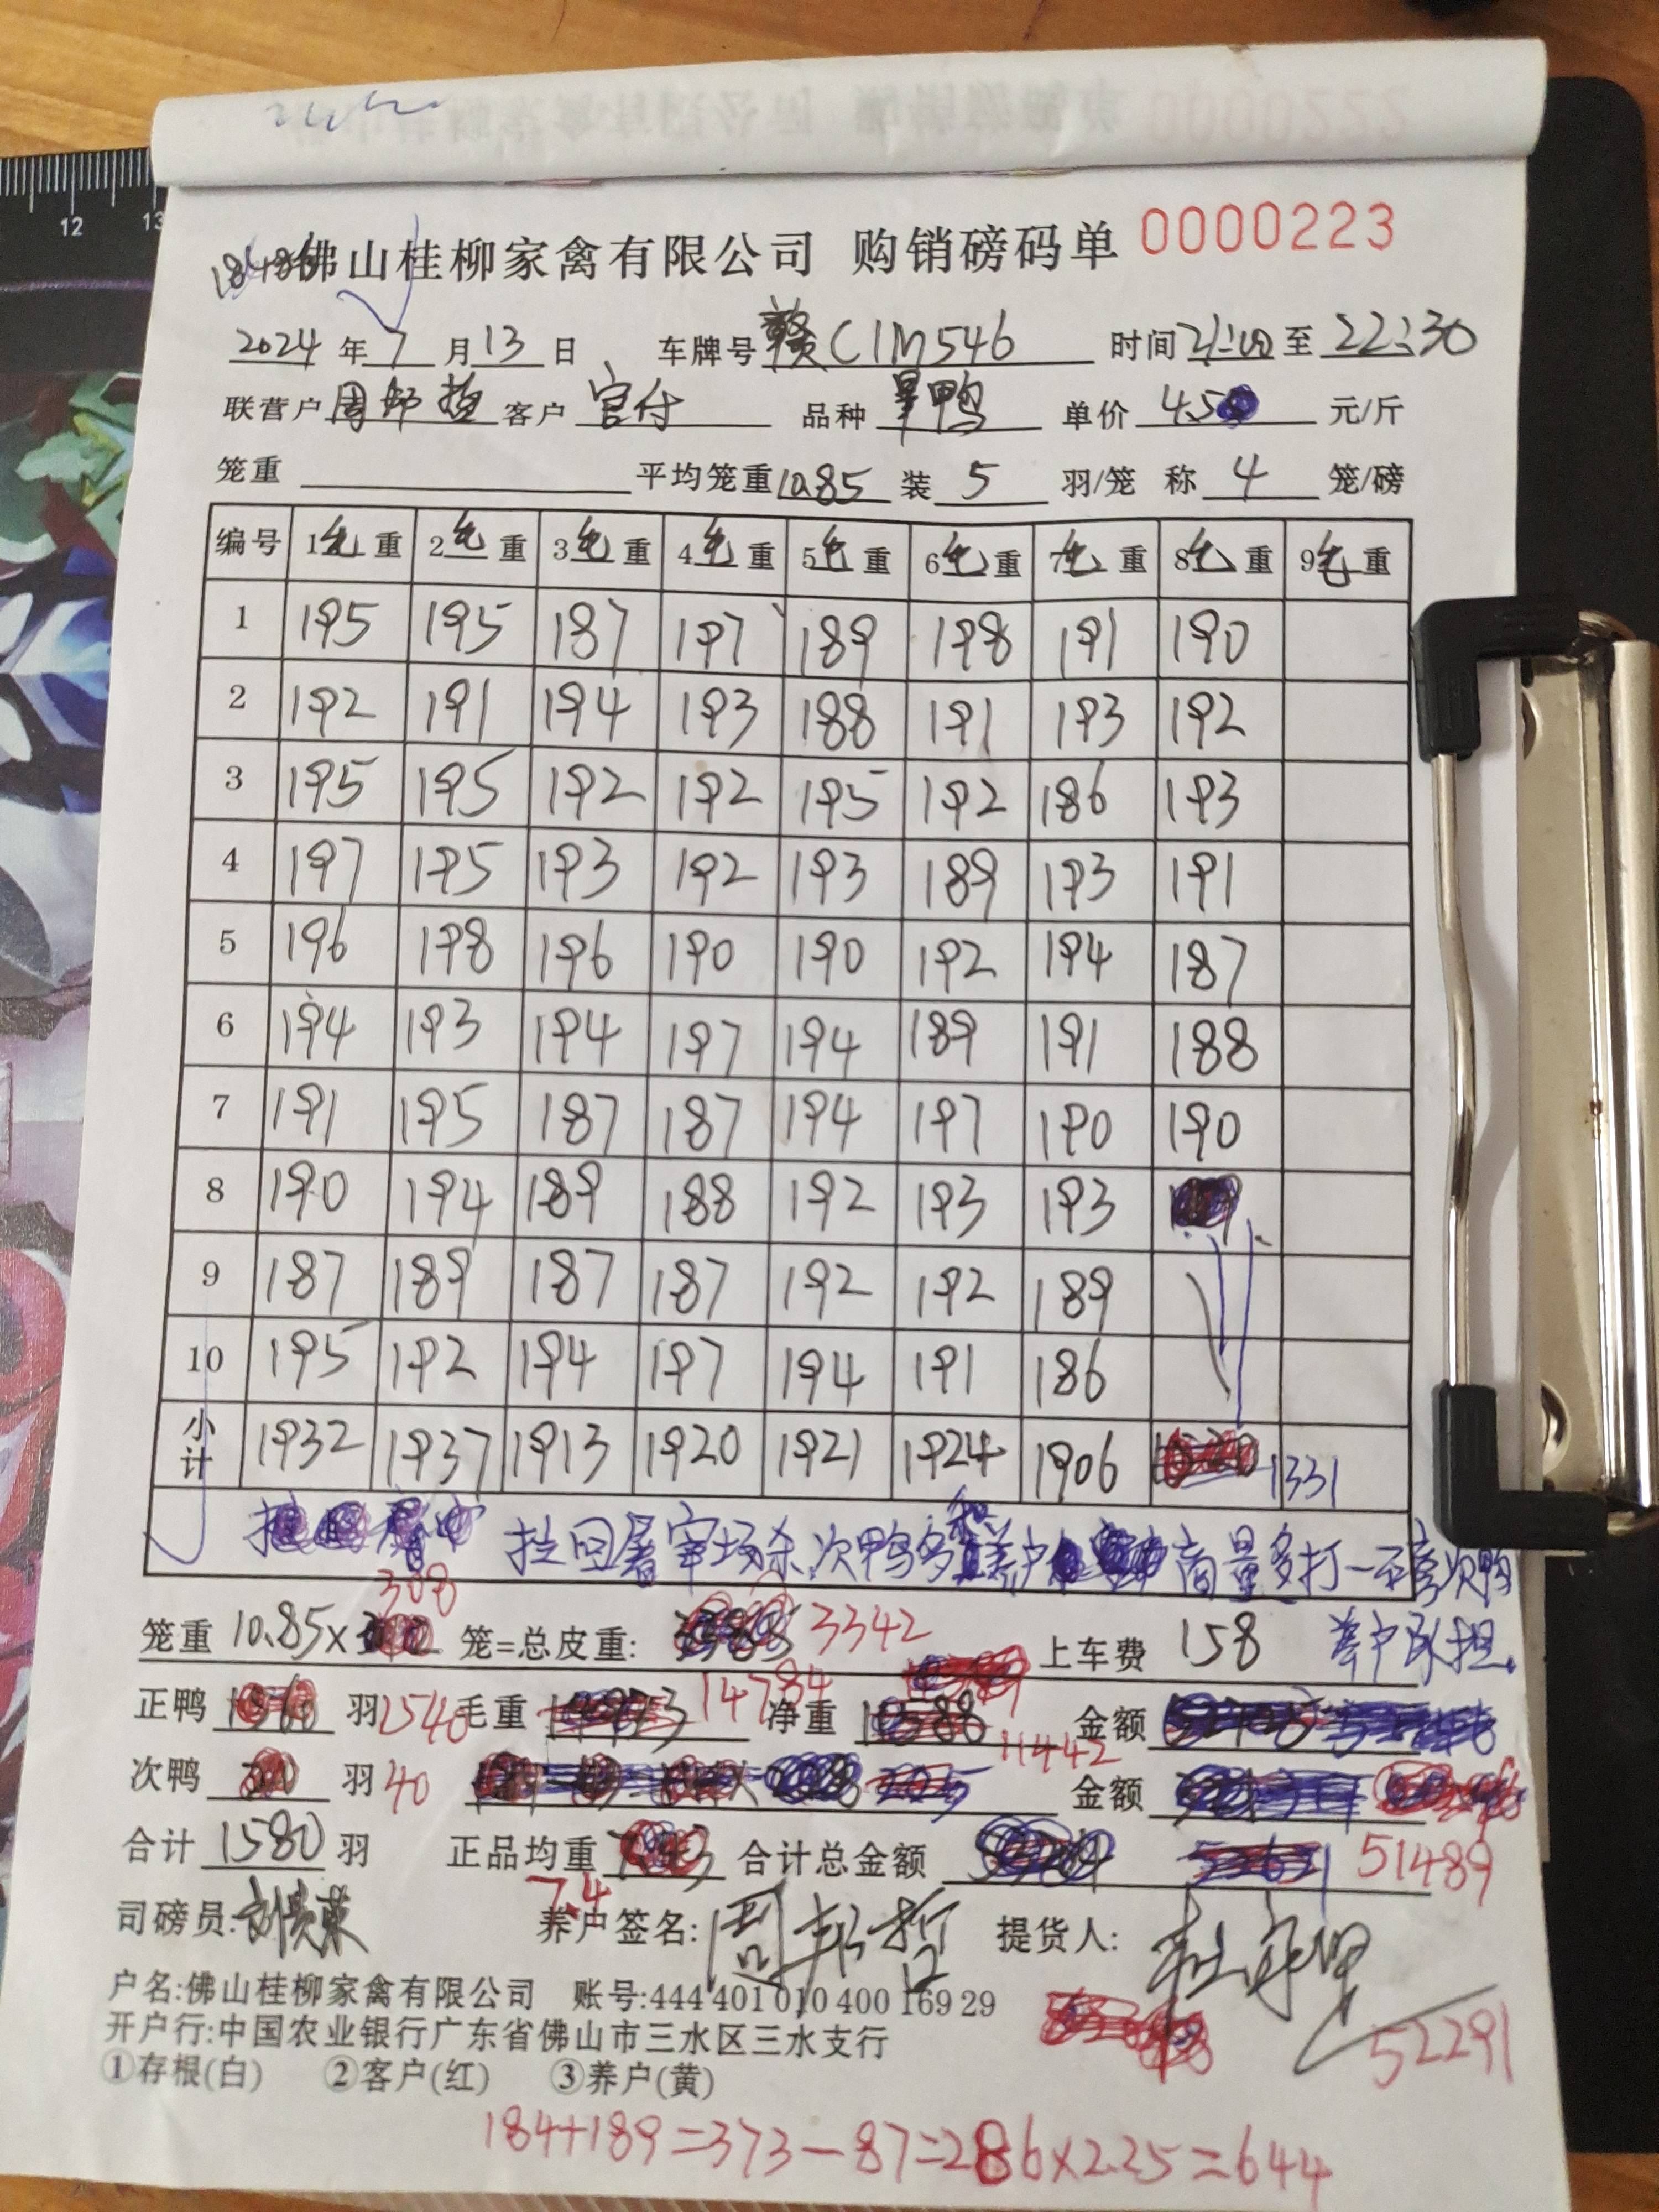 0000222
佛山桂柳家禽有限公司 购销磅码单 0000223
2024 年 7 月 13 日 车牌号 赣C1M546 时间 21:00 至 22:30
联营户 周邦哲 客户 官付 品种 旱鸭 单价 4.5 元/斤
笼重 平均笼重 10.85 装 5 羽/笼 称 4 笼/磅
编号 1毛重 2毛重 3毛重 4毛重 5毛重 6毛重 7毛重 8毛重 9毛重
1 195 195 187 197 189 198 191 190
2 192 191 194 193 188 191 193 192
3 195 195 192 192 195 192 186 193
4 197 195 193 192 193 189 193 191
5 196 198 196 190 190 192 194 187
6 194 193 194 197 194 189 191 188
7 191 195 187 187 194 197 190 190
8 190 194 189 188 192 193 193
9 187 189 187 187 192 192 189
10 195 192 194 197 194 191 186
小计 1932 1937 1913 1920 1921 1924 1906 1331
拉回署宰场杀次鸭多 养户 商量多打一 次鸭
养户承担.
笼重 10.85× 308 笼=总皮重: 3342 上车费 158
正鸭 羽 1540 毛重 14784 净重 11442 金额
次鸭 羽 40 金额
合计 1580 羽 正品均重 7.4 合计总金额 51489
司磅员: 养户签名: 周邦哲 提货人:
户名:佛山桂柳家禽有限公司 账号:444 401 010 400 169 29
开户行:中国农业银行广东省佛山市三水区三水支行
52291
①存根(白) ②客户(红) ③养户(黄)
184+189=373-87=286×2.25=644